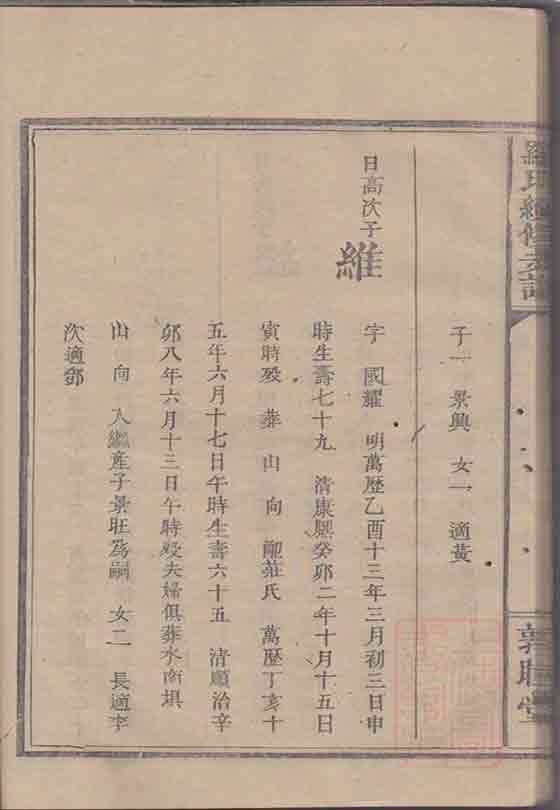 羅氏續修支譜
敦睦堂
子一 景興 女一 適黃
日高次子 維
字 國耀 明萬歷乙酉十三年三月初三日申
時生壽七十九 清康熙癸卯二年十月十五日
寅時歿 葬 山 向 配莊氏 萬歷丁亥十
五年六月十七日午時生壽六十五 清順治辛
卯八年六月十三日午時歿夫婦俱葬水南垻
山 向 入繼産子景旺爲嗣 女二 長適李
次適鄧